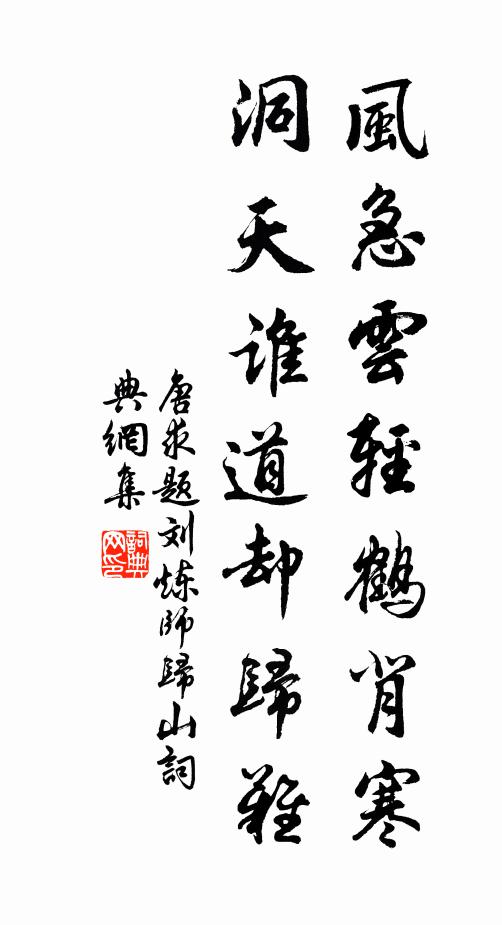 風急雲輕鶴背寒
洞天誰道却歸難
唐求题刘炼師歸山詞
典網集
詞典
网印